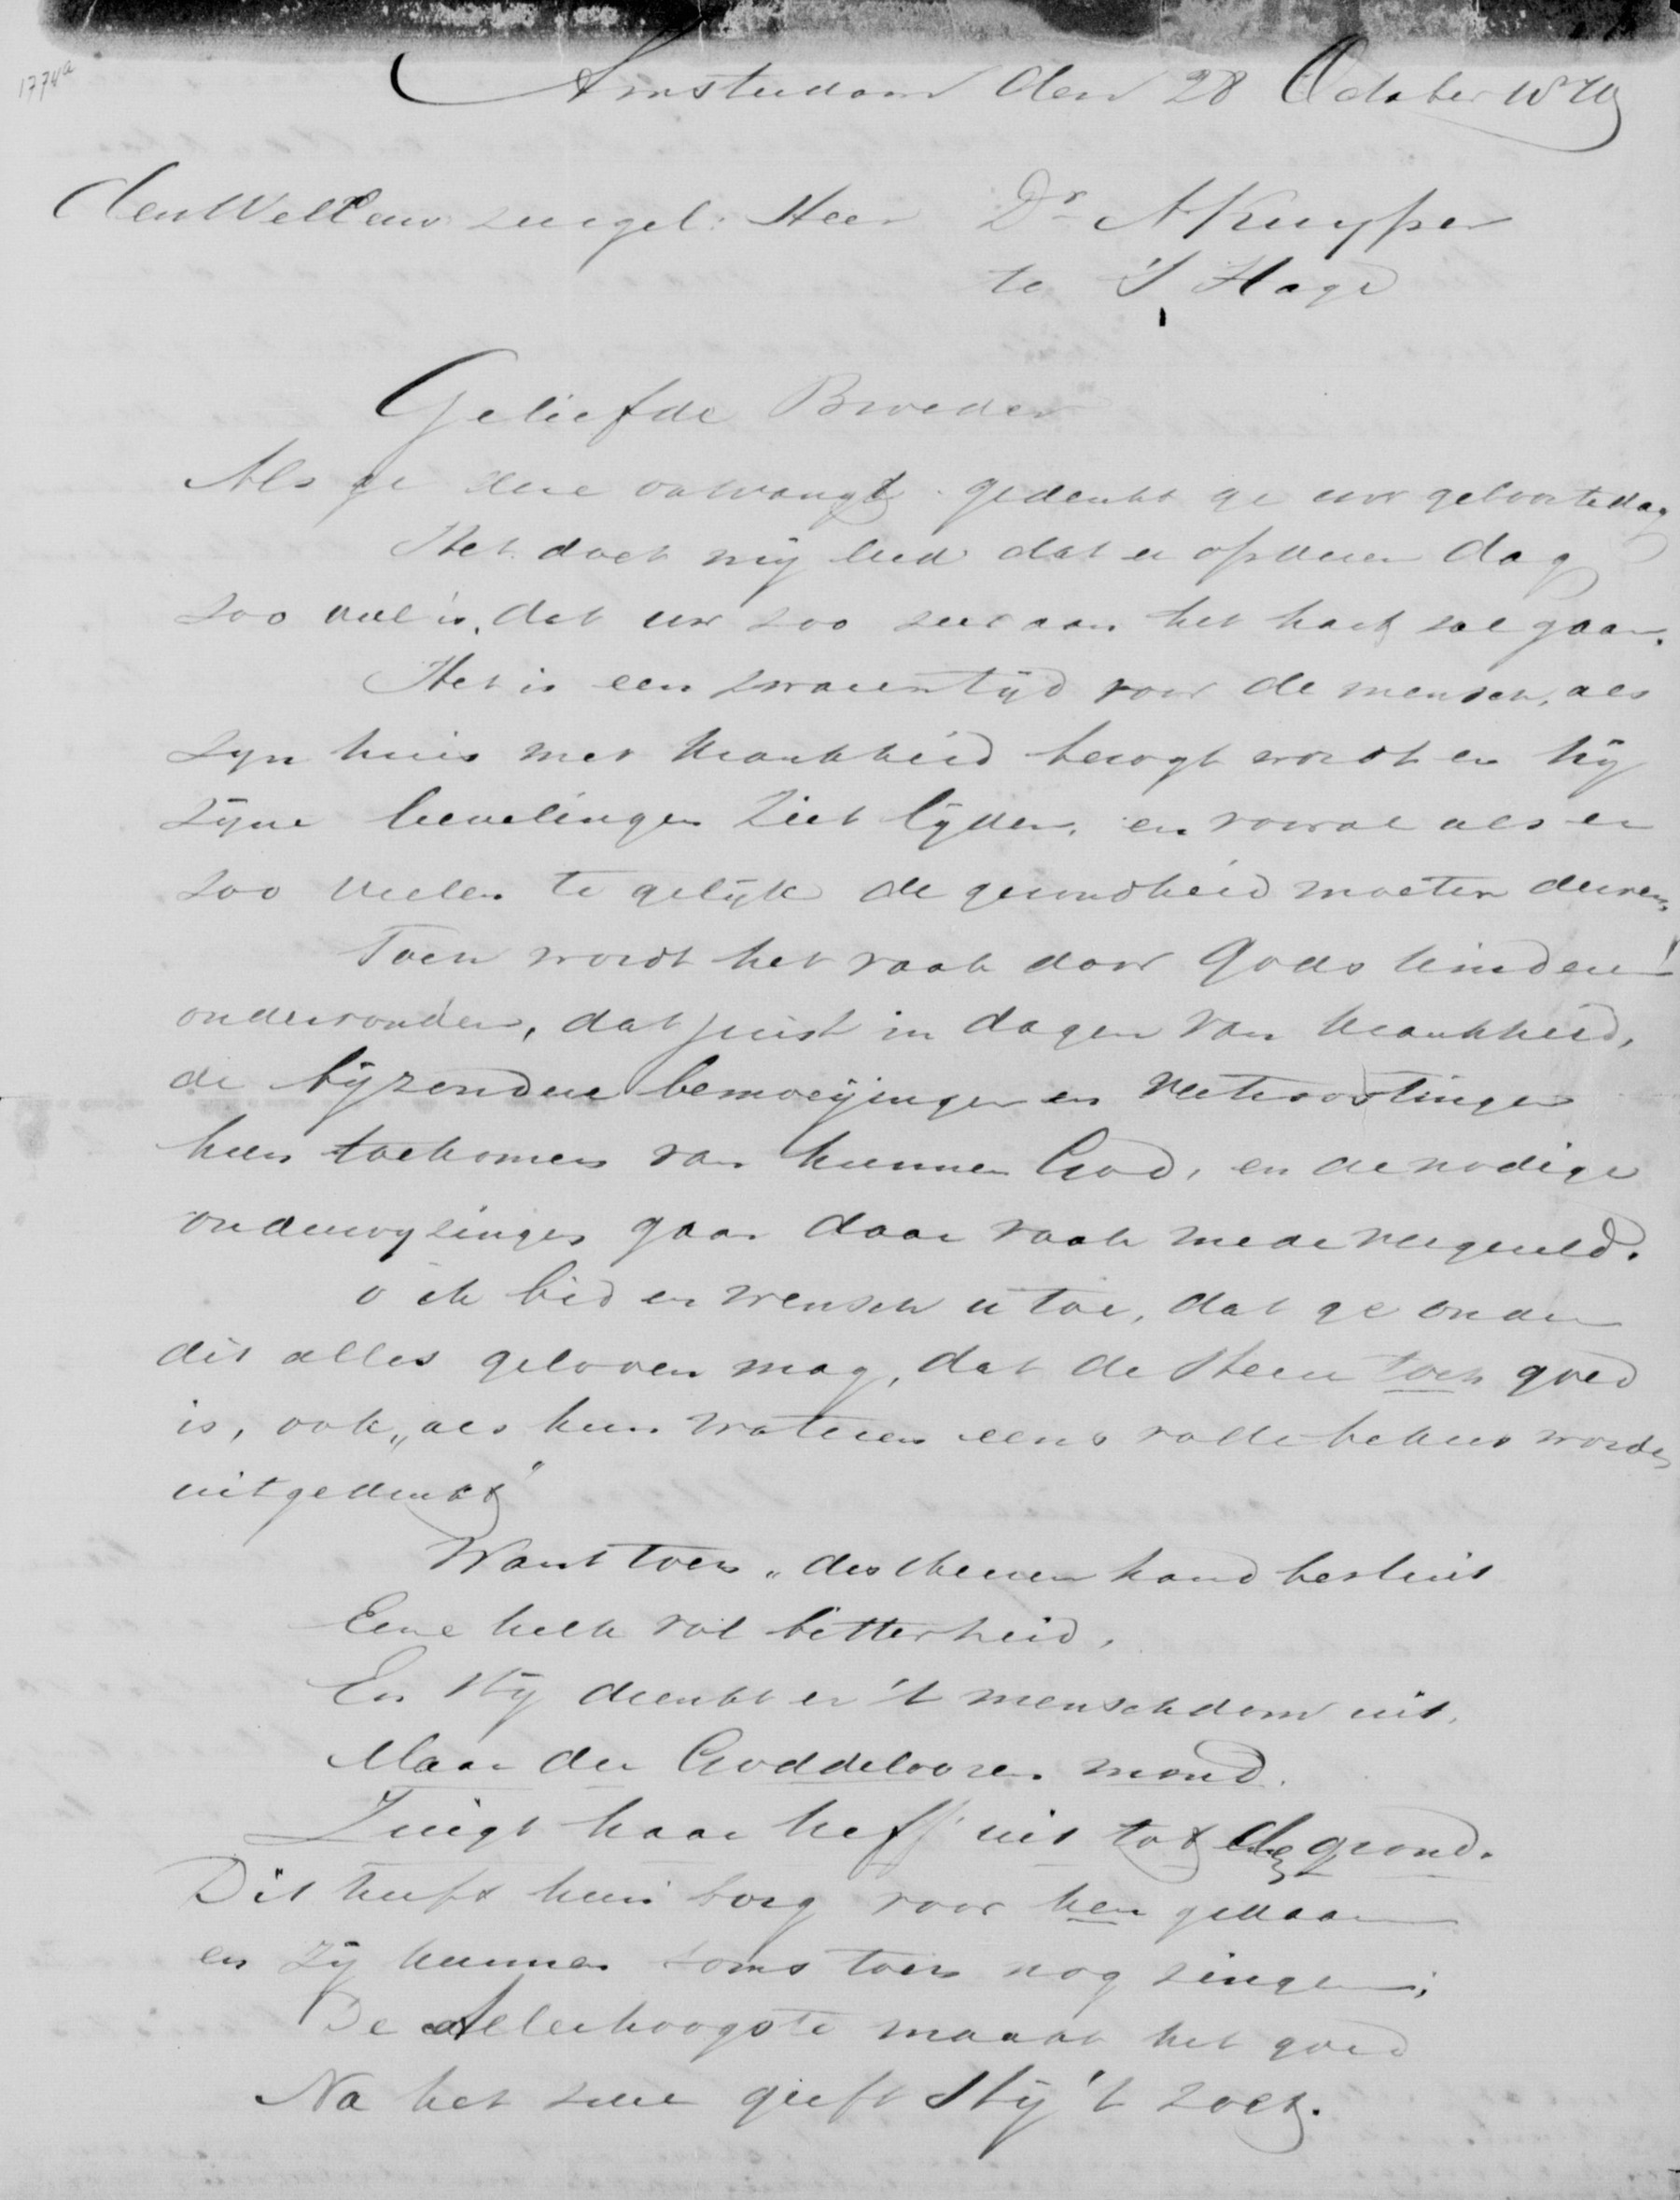 1774a
Amsterdam den 28 October 18
den WelEerw zeergel: Heer Dr A Kuyper
te 's Hage
Geliefde Broeder
Als ge deze ontvangt gedenkt ge uw geboortedag
Het doet mij leed dat er op dezen dag
zoo veel is, dat uw zoo zeer aan het hart zal gaan.
Het is een zwaren tijd voor de mensch, als
zyn huis met krankheid bezogt wordt en hij
zijne lievelingen ziet lijden, en vooral als er
zoo velen te gelijk de gezondheid moeten derven,
Toen wordt het vaak door Gods kinderen
ondervonden, dat juist in dagen van krankheid,
de bijzondere bemoeijingen en vertroostingen
hen toekomen van hunnen God, en de nodige
onderwyzingen gaan daar vaak mede vergezeld.
o ik bid en wensch u toe, dat ge onder
dit alles geloven mag, dat de Heere toch goed
is, ook „als hun wateren eens vollebekers worden
uitgedrukt"
Want toen „des Heeren hand besluit
Eene kelk vol bitterheid,
En Hij drenkt er 't menschdom uit,
Maar der Goddeloozen mond.
Zuigt haar heff' uit tot de grond.
Dit heeft hun borg voor hen gedaan
en zij kunnen soms toen nog zingen;
De Allerhoogste maakt het goed
Na het zure geeft Hij 't zoet.